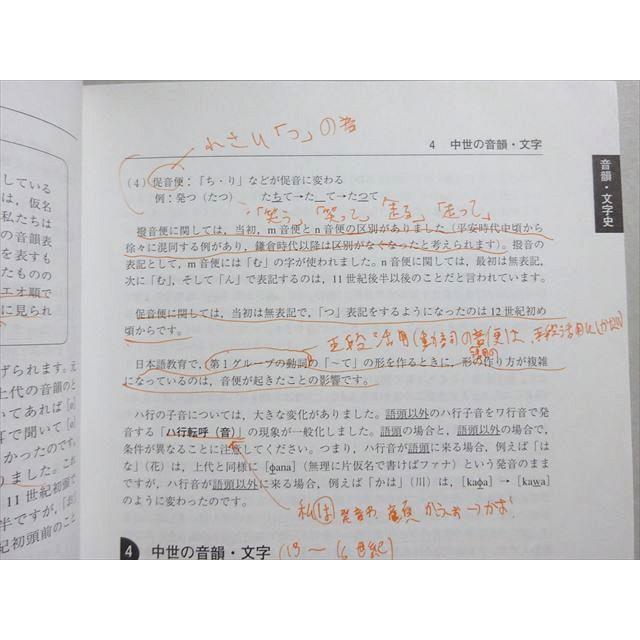 小さい「つ」の音
4　中世の音韻・文字
音韻・文字史
（4）促音便：「ち・り」などが促音に変わる
例：発つ（たつ）　たちて→た_て→たつて
「笑う」「笑って」「走る」「走って」
撥音便に関しては，当初，m音便とn音便の区別がありました（平安時代中頃から
徐々に混同する例があり，鎌倉時代以降は区別がなくなったと考えられます）。撥音の
表記として，m音便には「む」の字が使われました。n音便に関しては，最初は無表記，
次に「む」，そして「ん」で表記するのは，11世紀後半以後のことだと言われています。
促音便に関しては，当初は無表記で，「つ」表記をするようになったのは12世紀初め
頃からです。
五段活用（動詞の音便は，
日本語教育で，第1グループの動詞の「〜て」の形を作るときに，形の作り方が複雑
になっているのは，音便が起きたことの影響です。
ハ行の子音については，大きな変化がありました。語頭以外のハ行子音をワ行音で発
音する「ハ行転呼（音）」の現象が一般化しました。語頭の場合と，語頭以外の場合で，
条件が異なることに注意してください。つまり，ハ行音が語頭に来る場合，例えば「は
な」（花）は，上代と同様に［ɸana］（無理に片仮名で書けばファナ）という発音のまま
ですが，ハ行音が語頭以外に来る場合，例えば「かは」（川）は，［kaɸa］→［kawa］
のように変わったのです。
私は 発音わ
4 中世の音韻・文字（13〜16世紀）
している
は，仮名
私たちは
の音韻表
を表すも
たものの
エオ順で
に見られ
げられます。元
上代の音韻のと
いてあれば［o］
耳で聞いて［o］
かったのです。
りました。これ
11世紀初頭で
半ですが，「お」
紀初頭前のこと